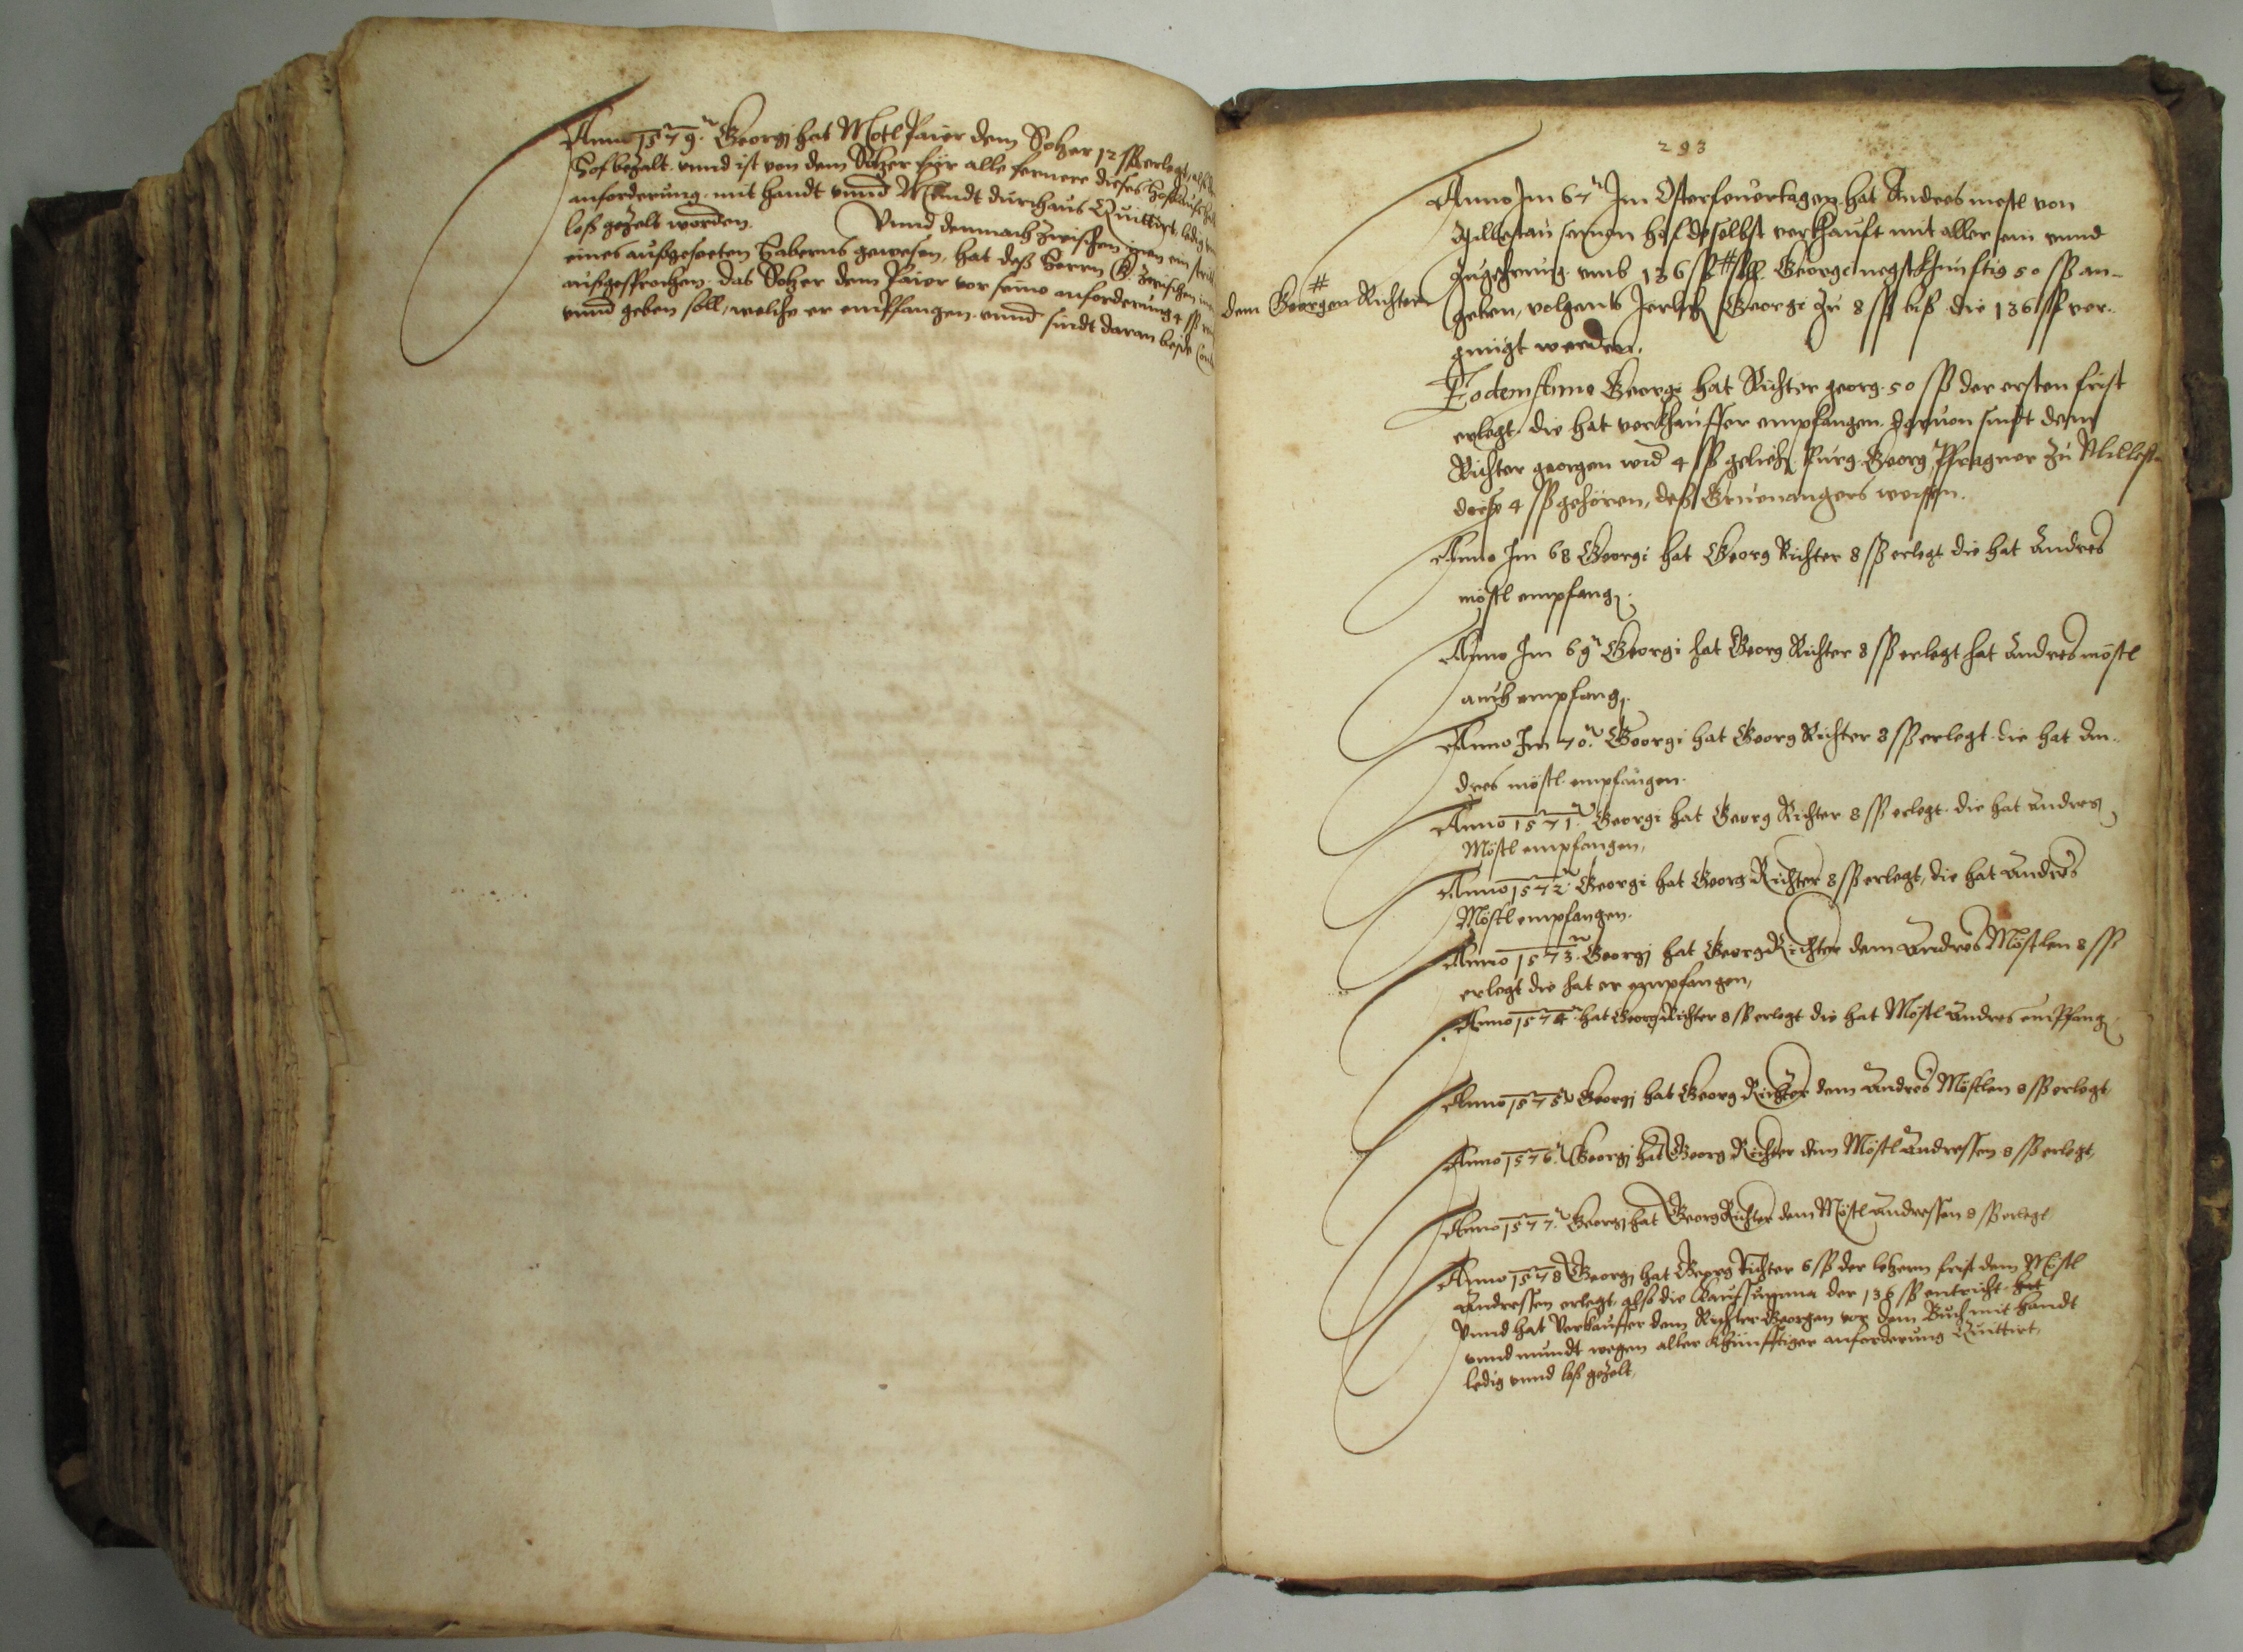 Anno 1579. Georgj hat Motl Paier dem Holzer 12 ß erlegt, also den
Hof bezalt. vnnd ist von dem Holzer für alle fernere dieses Hofkaufs halb
anforderung. mit handt vnnd Mundt durchaus Quittirt, ledig vnd
loß gezelt worden. Vnnd demnach zwischen jnen ein stritt
eines außgeseeten Haberns gewesen, hat deß Herrn
außgesprochen. das Holzer dem Paier vor seine anforderung 4 ß
vnnd geben soll, welche er empfangen. vnnd sindt daran bejde
293
Anno Im 67 Im Osterfeuertagen hat Andres mestl von
Millestau seinen hof doselbst verkhauft mit aller ein vnnd
Zugehrung vmb 136 ß # soll Georgi negstkhunftig 50 ß an-
# dem Georgen Richter
geben, volgents Jerlich Georgi zu 8 ß biß die 136 ß ver-
gnügt werden.
Eodem Anno Georgi hat Richter georg 50 ß der ersten frist
erlegt. die hat verkhauffer empfangen. daruon sindt dem
Richter georgen wid 4 ß gelieh. Burg Georg Pfragner zu Millest.
diese 4 ß gehören, deß Gruenangers weissen.
Anno Im 68 Georgi hat Georg Richter 8 ß erlegt die hat Andres
möstl empfang.
Anno Im 69 Georgi hat Georg Richter 8 ß erlegt hat Andres möstl
auch empfang.
Anno Im 70. Georgi hat Georg Richter 8 ß erlegt. die hat An-
dres möstl empfangen.
Anno 1571. Georgi hat Georg Richter 8 ß erlegt. die hat Andres
Möstl empfangen,
Anno 1572. Georgi hat Georg Richter 8 ß erlegt, die hat Andres
Möstl empfangen.
Anno 1573. Georgj hat Georg Richter dem Andres Möstlen 8 ß
erlegt die hat er empfangen,
Anno 1574. hat Georg Richter 8 ß erlegt die hat Möstl Andres empfang
Anno 1575 Georgj hat Georg Richter dem Andres Möstlen 8 ß erlegt
Anno 1576. Georgj hat Georg Richter dem Möstl Andressen 8 ß erlegt,
Anno 1577. Georgj hat Georg Richter dem Möstl Andressen 8 ß erlegt
Anno 1578 Georgj hat Georg Richter 6 ß der letzern frist dem Möstl
Andressen erlegt, also die Kaufsumma der 136 ß entricht. hat
Vnnd hat Verkauffer dem Richter Georgen vor dem Buch mit handt
vnnd mundt wegen aller khünfftiger anforderung Quittirt,
ledig vnnd loß gezelt,